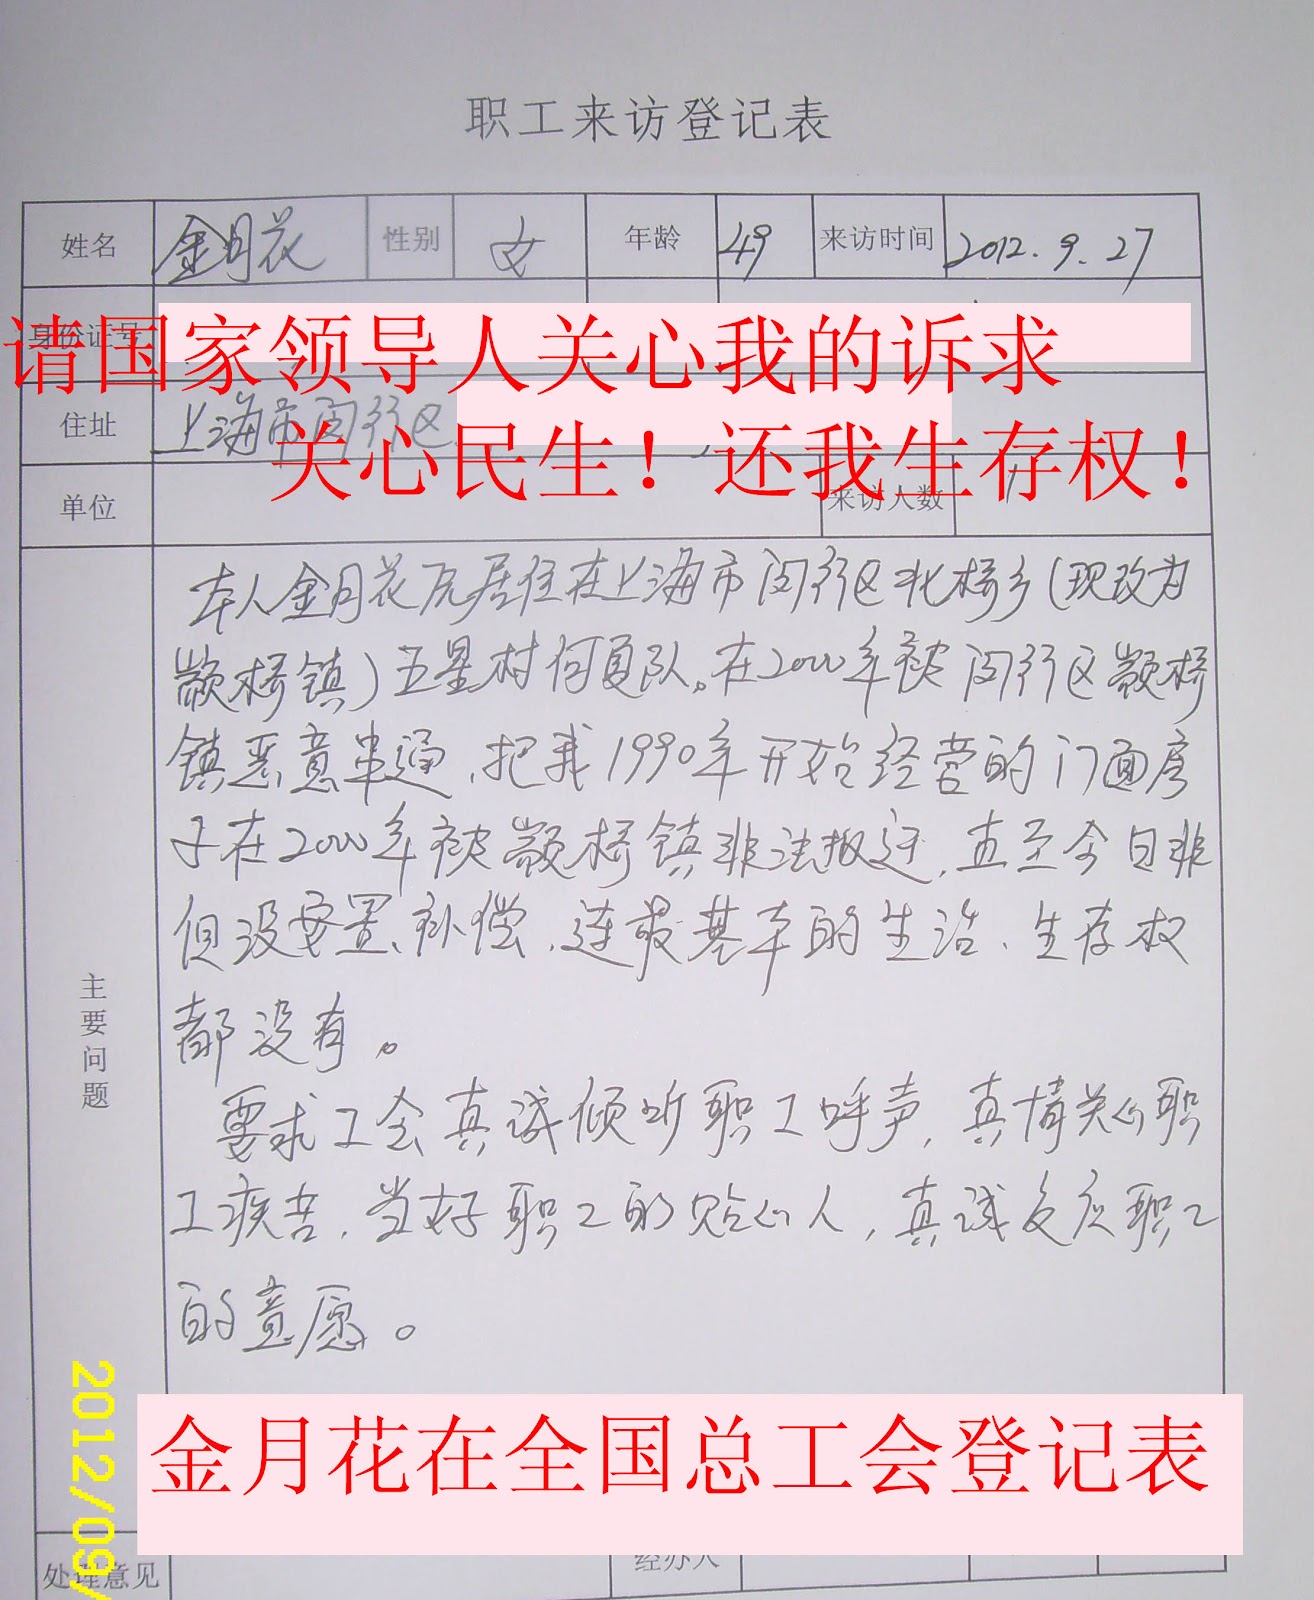 职工来访登记表
姓名 金月花 性别 女 年龄 49 来访时间 2012.9.27
身份证号
请国家领导人关心我的诉求
住址 上海市闵行区
关心民生！还我生存权！
单位 来访人数 1
本人金月花原居住在上海市闵行区北桥乡（现改为
颛桥镇）五星村何夏队。在2000年被闵行区颛桥
镇恶意串通，把我1990年开始经营的门面房
子在2000年被颛桥镇非法搬迁，直至今日非
但没安置、补偿，连最基本的生活、生存权
都没有。
主要问题
要求工会真诚倾听职工呼声，真情关心职
工疾苦，当好职工的贴心人，真诚反应职工
的意愿。
金月花在全国总工会登记表
处理意见 经办人
2012/09/